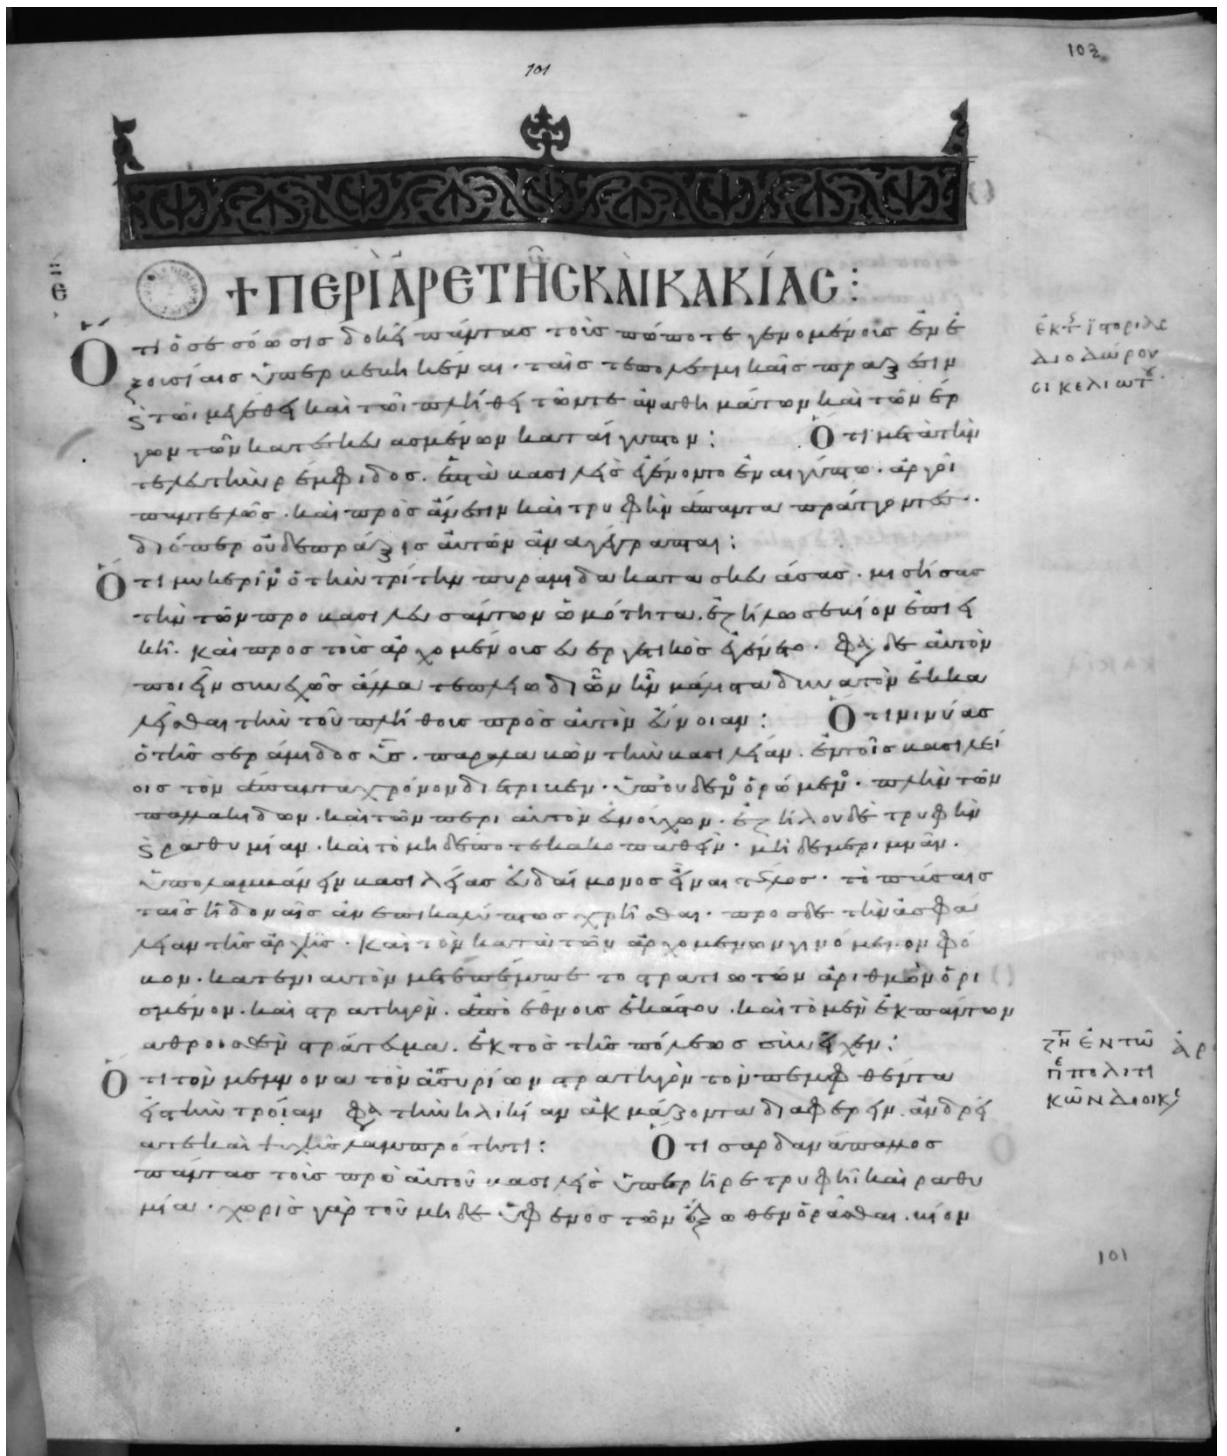 101
103
+ ΠΕΡῚ ἈΡΕΤΗ͂Σ ΚΑῚ ΚΑΚΊΑΣ :
Ὅτι ὁ σεσόωσις δοκεῖ πάντας τοὺς πώποτε γενομένους ἐν ἐ
ξουσίαις ὑπερβεβηκέναι · ταῖς τε πολεμικαῖς πράξεσιν
καὶ τῶι μεγέθει καὶ τῶι πλήθει τῶν τε ἀναθημάτων καὶ τῶν ἔρ
γων τῶν κατεσκευασμένων κατ' αἴγυπτον : Ὅτι μετὰ τὴν
τελευτὴν ῥέμφιδος . ἑπτὰ βασιλεῖς ἐγένοντο ἐν αἰγύπτω . ἀργοὶ
παντελῶς . καὶ πρὸς ἄνεσιν καὶ τρυφὴν ἅπαντα πράττοντες ·
διόπερ οὐδὲ πράξις αὐτῶν ἀναγέγραπται :
Ὅτι μυκερῖνος ὁ τὴν τρίτην πυραμίδα κατασκευάσας . μισήσας
τὴν τῶν προβασιλευσάντων ὠμότητα . ἐζήλωσε βίον ἐπιει
κῆ . καὶ πρὸς τοὺς ἀρχομένους εὐεργετικὸς ἐγένετο . φασὶ δὲ αὐτὸν
ποιεῖν συνεχῶς ἄλλα τε πλείω δι' ὧν ἦν μάλιστα δυνατὸν ἐκκα
λεῖσθαι τὴν τοῦ πλήθους πρὸς αὐτὸν εὔνοιαν : Ὅτι νινύας
ὁ τῆς σεμιράμιδος υἱὸς . παραλαβὼν τὴν βασιλείαν . ἐν τοῖς βασιλεί
οις τὸν ἅπαντα χρόνον διέτριβεν . ὑπ' οὐδενὸς ὁρώμενος . πλὴν τῶν
παλλακίδων . καὶ τῶν περὶ αὐτὸν εὐνούχων . ἐζήλου δὲ τρυφὴν
καὶ ῥαθυμίαν . καὶ τὸ μηδέποτε κακοπαθεῖν . μηδὲ μεριμνᾶν .
ὑπολαμβάνειν βασιλείας εὐδαίμονος εἶναι τέλος . τὸ πάσαις
ταῖς ἡδοναῖς ἀνεπικαλύπτως χρῆσθαι . πρὸς δὲ τὴν ἀσφά
λειαν τῆς ἀρχῆς . καὶ τὸν κατὰ τῶν ἀρχομένων γινόμενον φό
βον . κατ' ἐνιαυτὸν μετεπέμπετο στρατιωτῶν ἀριθμὸν ὡρι
σμένον . καὶ στρατηγὸν . ἀπὸ ἔθνους ἑκάστου . καὶ τὸ μὲν ἐκ πάντων
ἀθροισθὲν στράτευμα . ἐκτὸς τῆς πόλεως συνεῖχεν :
Ὅτι τὸν μέμνονα τὸν ἀσσυρίων στρατηγὸν τὸν πεμφθέντα
εἰς τὴν τροίαν φασὶ τὴν ἡλικίαν ἀκμάζοντα διαφέρειν . ἀνδρεί
α τε καὶ ψυχῆς λαμπρότητι : Ὅτι σαρδανάπαλλος
πάντας τοὺς πρὸ αὐτοῦ βασιλεῖς ὑπερῆρε τρυφῆ καὶ ῥαθυ
μία . χωρὶς γὰρ τοῦ μηδὲ ὑφ' ἑνὸς τῶν ἔξωθεν ὁρᾶσθαι . βίον
ἐκ τῆς ἱστορίας
διοδώρου
σικελιώτου
ζήτει ἐν τῶ
πολιτι
κῶν διοικ
101